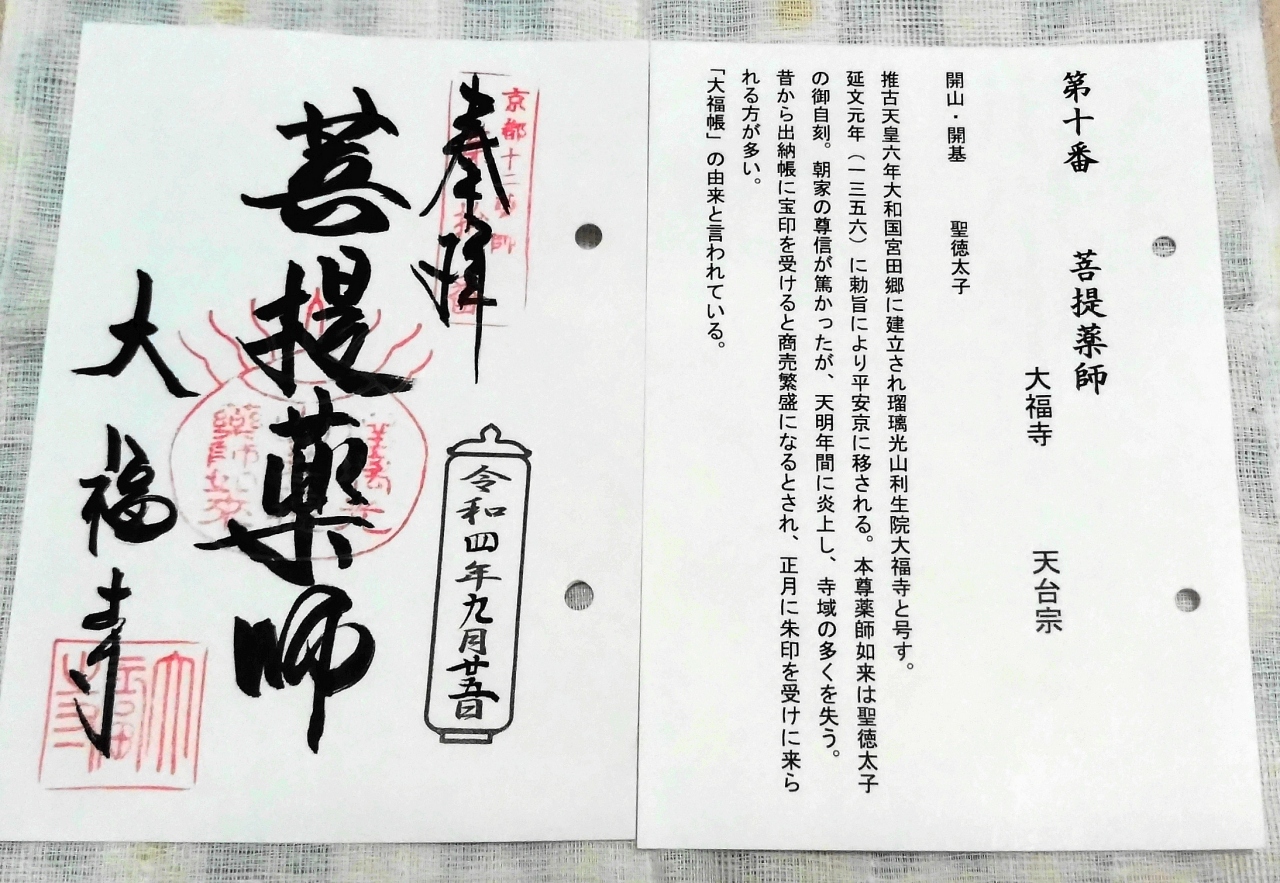 第十番 菩提薬師
大福寺 天台宗
開山・開基 聖徳太子
推古天皇六年大和国宮田郷に建立され瑠璃光山利生院大福寺と号す。
延文元年（一三五六）に勅旨により平安京に移される。本尊薬師如来は聖徳太子
の御自刻。朝家の尊信が篤かったが、天明年間に炎上し、寺域の多くを失う。
昔から出納帳に宝印を受けると商売繁盛になるとされ、正月に朱印を受けに来ら
れる方が多い。
「大福帳」の由来と言われている。
京都十二薬師
奉拝
令和四年九月廿五日
菩提薬師
大福寺